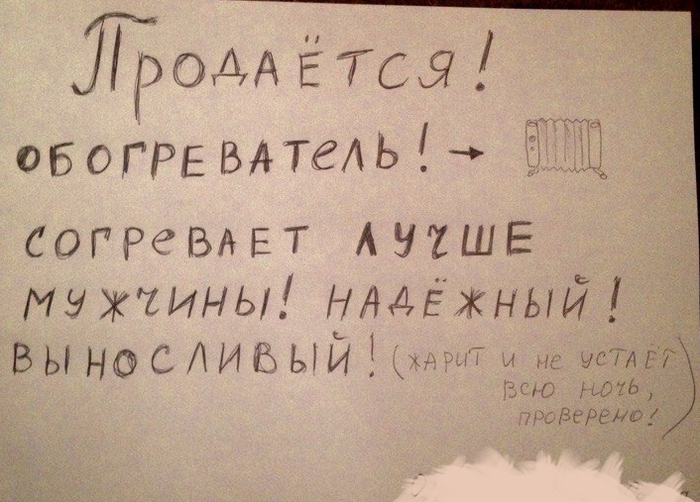 Продаётся!
ОБОГРЕВАТеЛЬ! →
СОГРеВАЕТ ЛУЧШЕ
МУЖЧИНЫ! НАДЁЖНЫЙ!
ВЫНОСЛИВЫЙ! (ЖАРИТ И Не УСТАЁТ
ВСЮ НОЧЬ,
ПРОВЕРЕНО!)